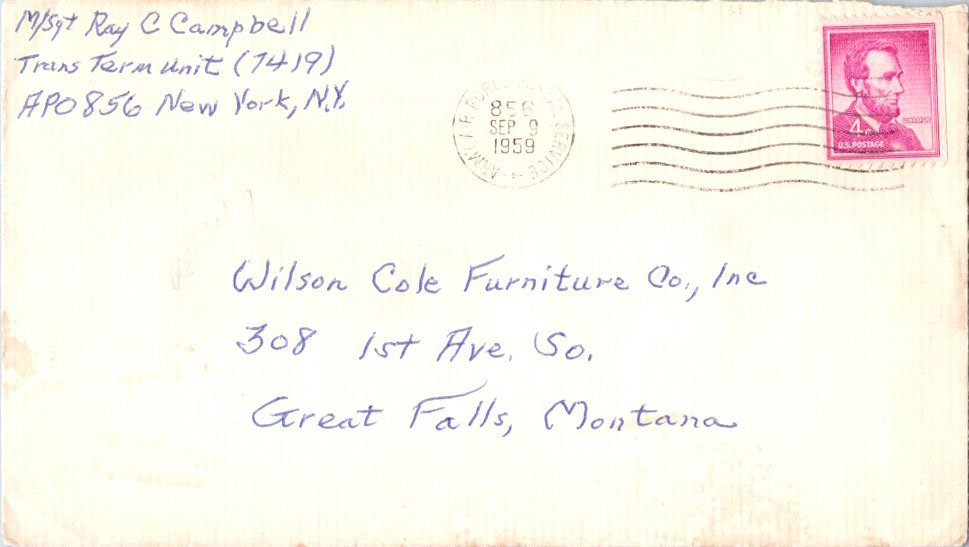 M/Sgt Ray C Campbell
Trans Term Unit (7419)
APO 856 New York, N.Y.
ARMY
SERVICE
856
SEP 9
1959
LINCOLN
4¢
U.S. POSTAGE
Wilson Cole Furniture Co., Inc
308 1st Ave. So.
Great Falls, Montana